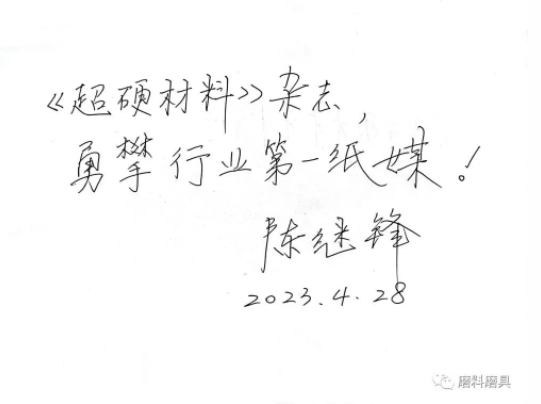 《超硬材料》杂志，
勇攀行业第一纸媒！
陈继锋
2023.4.28
磨料磨具